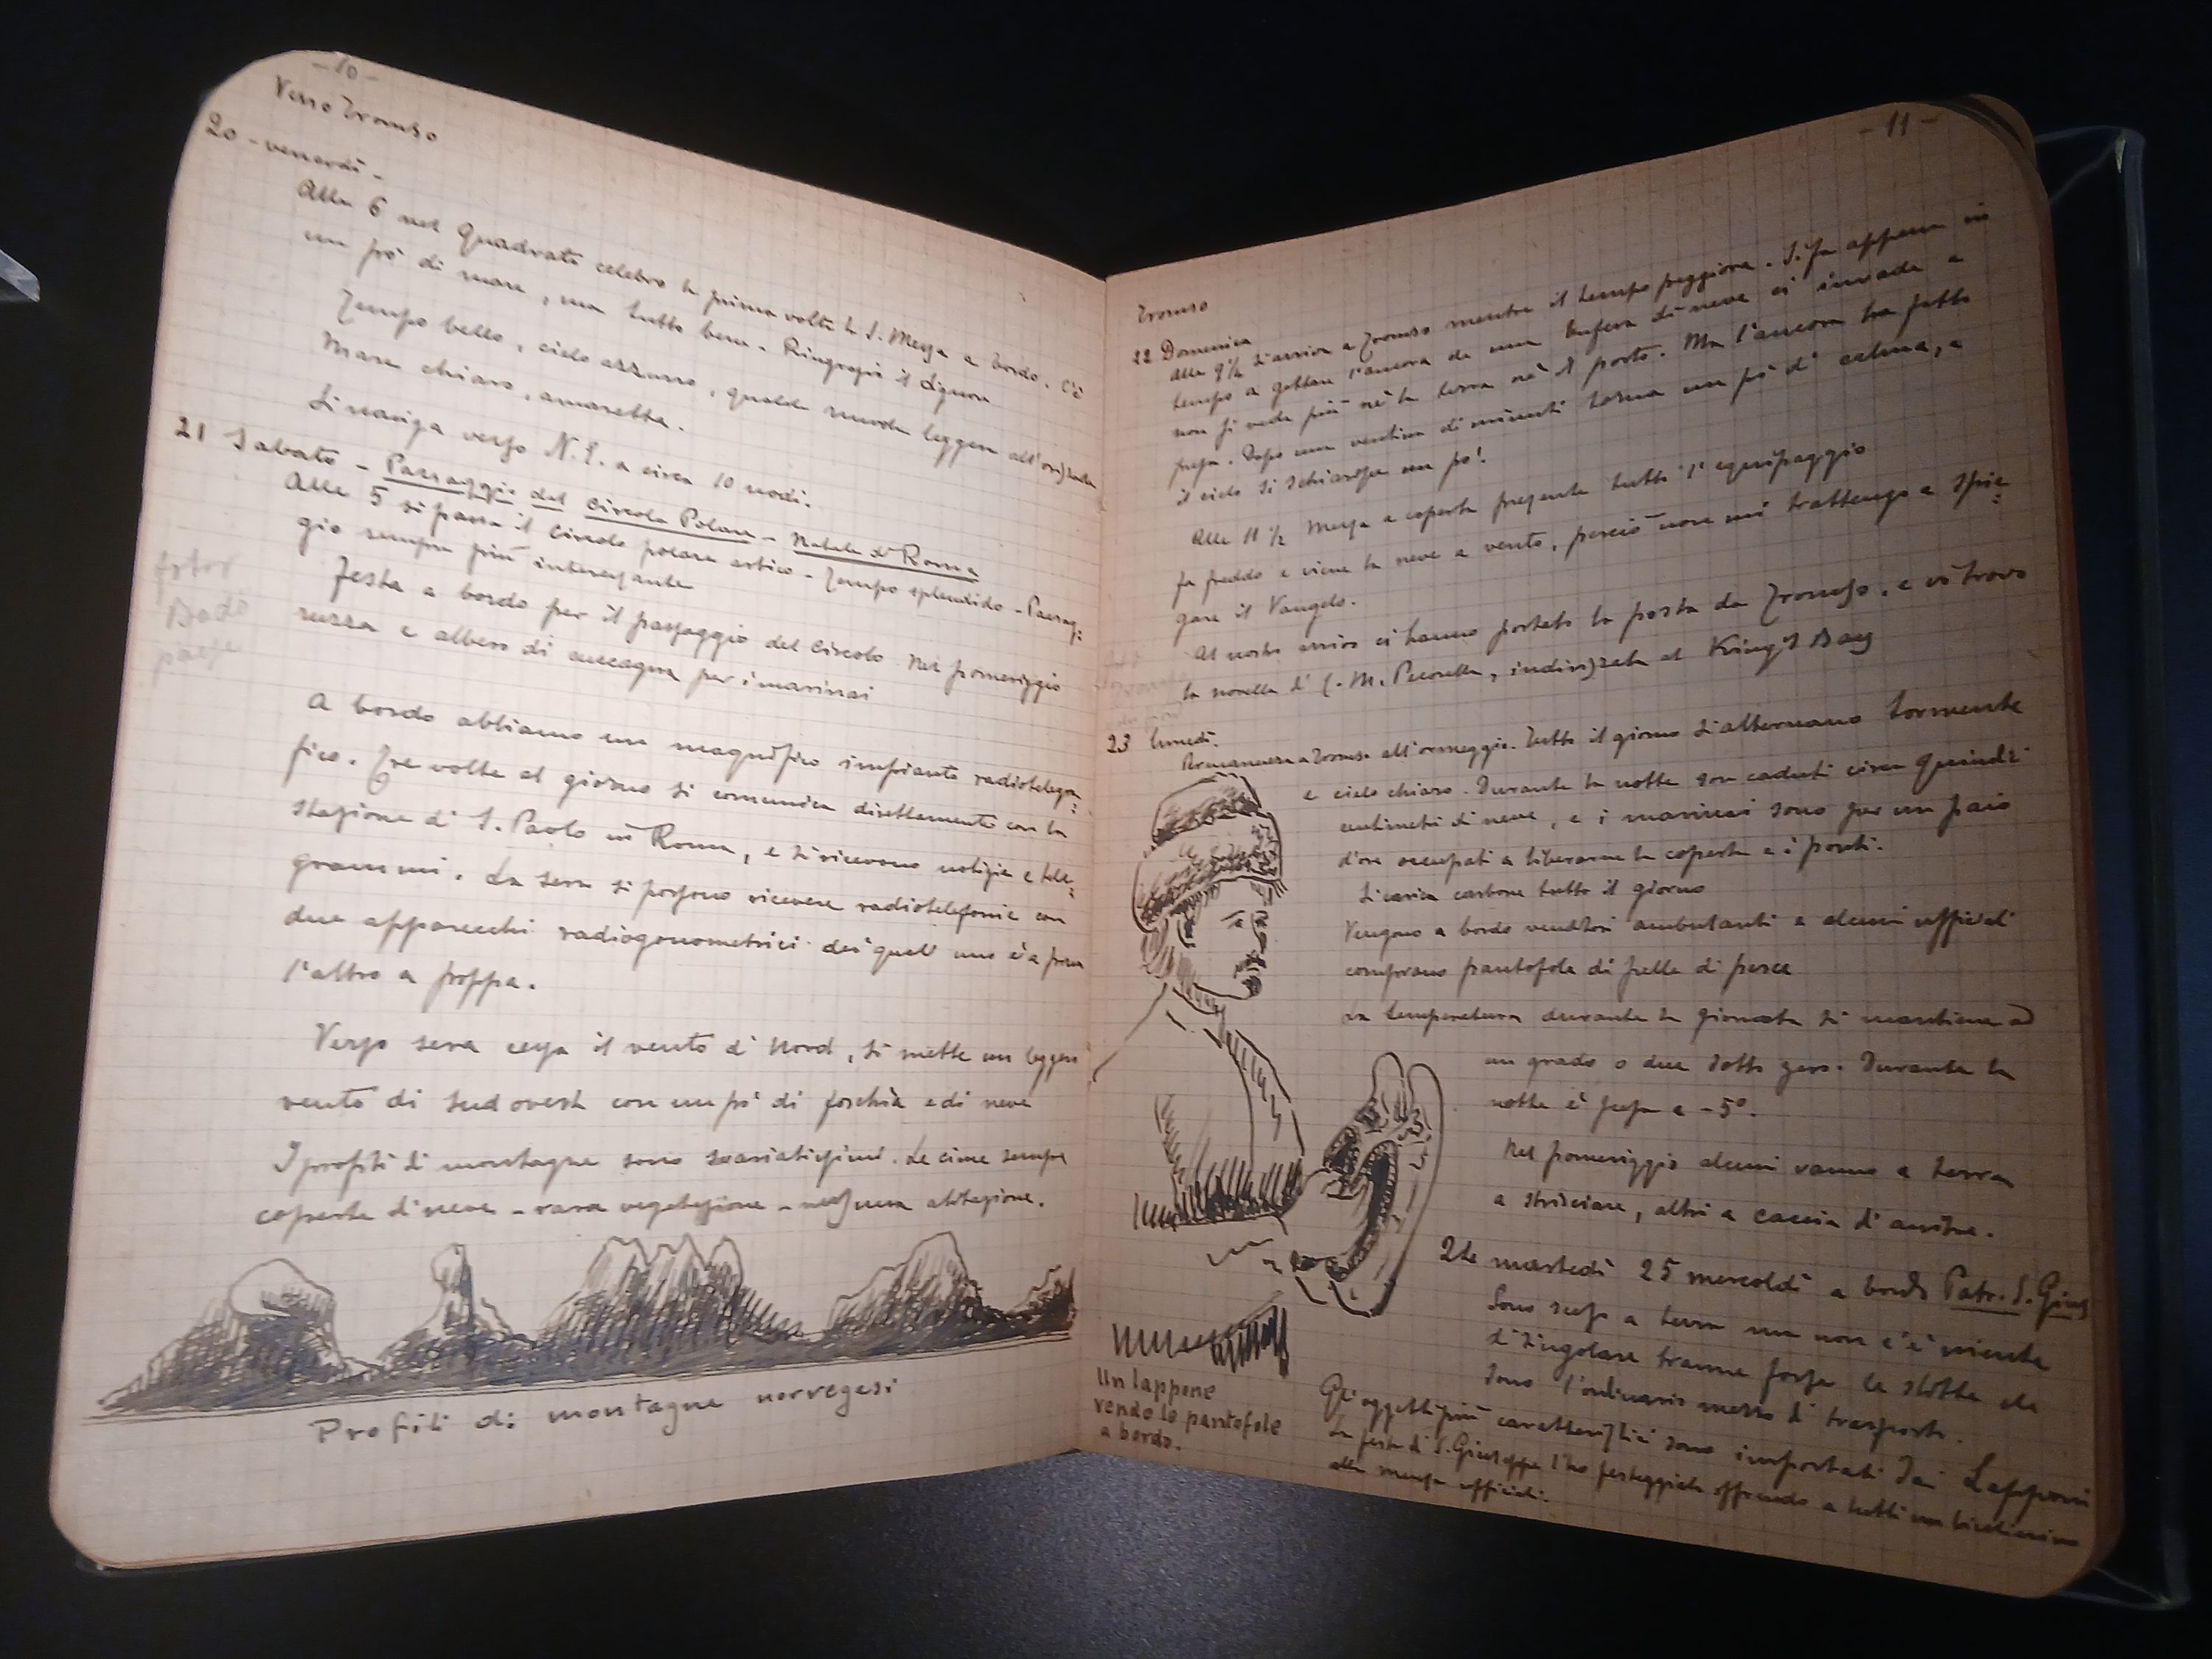 - 10 -
Verso Tromso
20 - venerdì -
Alle 6 nel Quadrato celebro la prima volta la S. Messa a bordo. C'è
un pò di mare, ma tutto bene. Ringrazio il Signore
Tempo bello, cielo azzurro, qualche nuvola leggera all'orizzonte
Mare chiaro, amaretto.
Si naviga verso N.E. a circa 10 nodi.
21 Sabato - Passaggio del Circolo Polare - Natale di Roma
Alle 5 si passa il Circolo polare artico - Tempo splendido - Paesag=
gio sempre più interessante
Festa a bordo per il passaggio del Circolo. Nel pomeriggio
e albero di cuccagna per i marinai
foto
Bodö
paese
A bordo abbiamo un magnifico impianto radiotelegra=
fico. Tre volte al giorno si comunica direttamente con la
stazione di S. Paolo in Roma, e si ricevono notizie e tele=
grammi. La sera si possono ricevere radiotelefonie con
due apparecchi radiogoniometrici dei quali uno è a prora
l'altro a poppa.
Verso sera cessa il vento di Nord, si mette un leggero
vento di sud ovest con un pò di foschia e di neve
I profili di montagne sono svariatissimi. Le cime sempre
coperte di neve - rara vegetazione - nessuna abitazione.
Profili di montagne norvegesi
- 11 -
Tromso
22 Domenica
Alle 9½ si arriva a Tromso mentre il tempo peggiora. Si fa appena in
tempo a gettare l'ancora che una bufera di neve ci invade e
non si vede più nè la terra nè il porto. Ma l'ancora ha fatto
presa. Dopo una ventina di minuti torna un pò di calma, e
il cielo si schiarisce un pò!
Alle 11½ Messa a coperta presente tutto l'equipaggio
fa freddo e viene la neve a vento, perciò non mi trattengo a spie=
gare il Vangelo.
Al nostro arrivo ci hanno portato la posta da Tromso, e vi trovo
la novella di C. M. Pecorella, indirizzata al King's Bay
23 lunedì.
Permanenza a Tromso all'ormeggio. Tutto il giorno si alternano tormente
e cielo chiaro. Durante la notte son caduti circa quindici
centimetri di neve, e i marinai sono per un paio
d'ore occupati a liberarne la coperta e i ponti.
Si carica carbone tutto il giorno
Vengono a bordo venditori ambulanti e alcuni ufficiali
comprano pantofole di pelle di
La temperatura durante la giornata si mantiene ad
un grado o due sotto zero. Durante la
notte è scesa a -5°.
Nel pomeriggio alcuni vanno a terra
a sciare, altri a caccia di anitre.
24 martedì 25 mercoldì a bordo Patr. S. Gius
Sono sceso a terra ma non c'è niente
di singolare tranne forse le slitte che
sono l'ordinario mezzo di trasporto.
Gli oggetti più caratteristici sono importati dai Lapponi
La festa di S. Giuseppe l'ho festeggiata offrendo a tutti un bicchierino
alla mensa ufficiali.
Un lappone
vende le pantofole
a bordo.